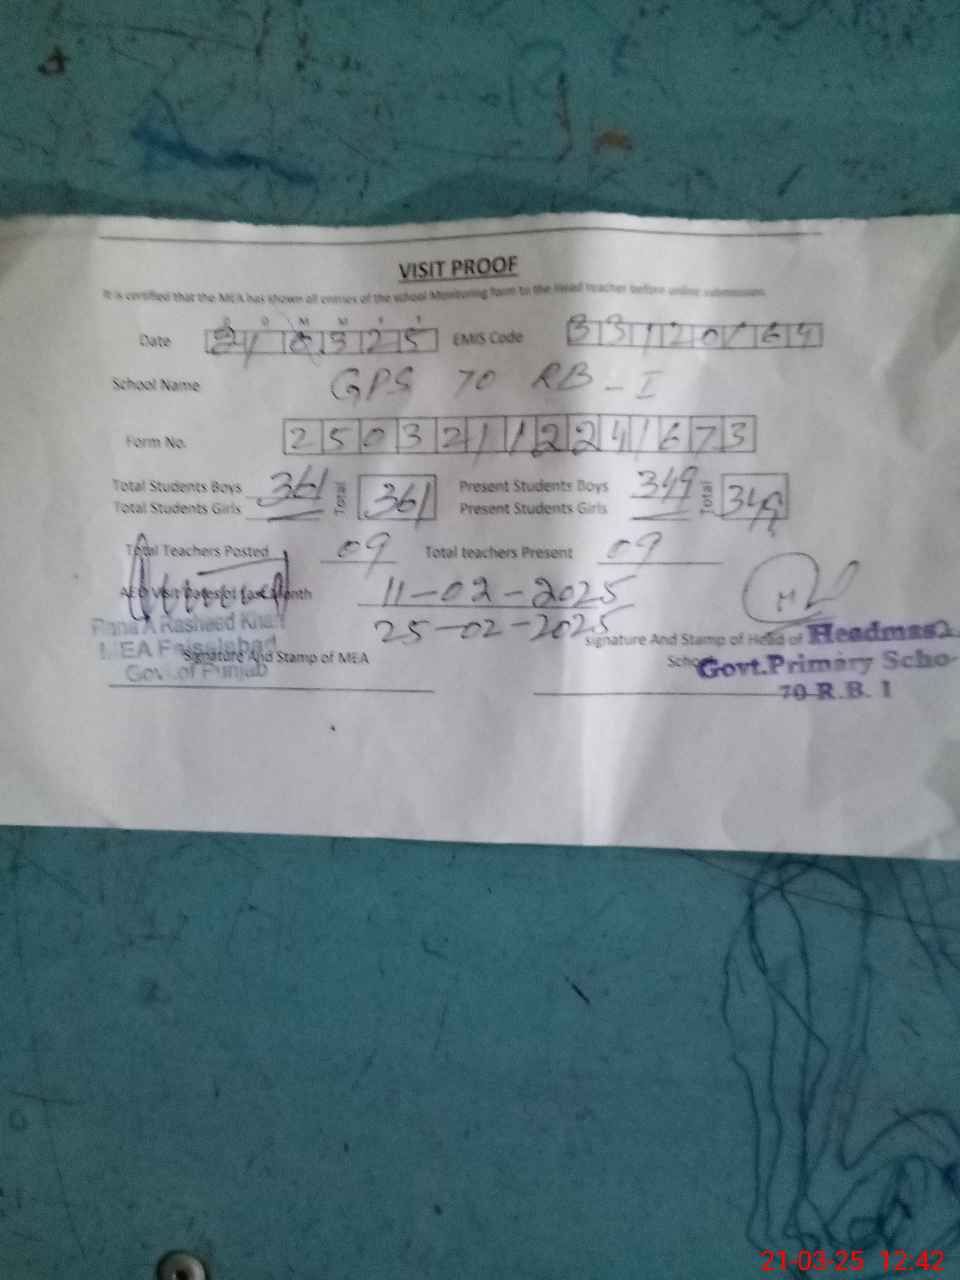 VISIT PROOF
It is certified that the MEA has shown all entries of the school Monitoring form to the Head teacher before online submission.
D D M M Y Y
Date 210325 EMIS Code 33120164
School Name GPS 70 RB-I
Form No. 25032112241673
Total Students Boys 361 Total 361 Present Students Boys 349 Total 349
Total Students Girls Present Students Girls
Total Teachers Posted 09 Total teachers Present 09
AEO Visit Dates of Last Month 11-02-2025
25-02-2025
Rana A Rasheed Khan
MEA Faisalabad
Govt. of Punjab
Signature And Stamp of MEA
Signature And Stamp of Head of School
Headmas
Govt.Primary Scho
70 R.B. I
21-03-25 12:42